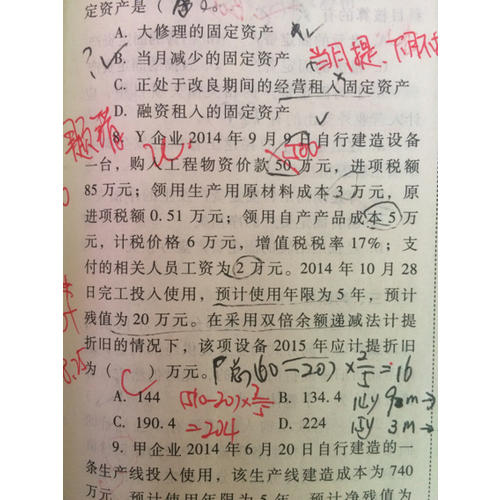 定资产是(
A. 大修理的固定资产
B. 当月减少的固定资产 当月提、下月不
C. 正处于改良期间的经营租入固定资产
D. 融资租入的固定资产
8. Y 企业 2014 年 9 月 9 日自行建造设备
一台，购入工程物资价款 50 万元，进项税额 500
85 万元；领用生产用原材料成本 3 万元，原
进项税额 0.51 万元；领用自产产品成本 5 万
元，计税价格 6 万元，增值税税率 17%；支
付的相关人员工资为 2 万元。2014 年 10 月 28
日完工投入使用，预计使用年限为 5 年，预计
残值为 20 万元。在采用双倍余额递减法计提
折旧的情况下，该项设备 2015 年应计提折旧
为（ ）万元。 C (60-20)×2/5=16
A. 144 (510-20)×2/5 B. 134.4 14y
C. 190.4 =204 D. 224 15y 3m→
9. 甲企业 2014 年 6 月 20 日自行建造的一
条生产线投入使用，该生产线建造成本为 740
万元，预计使用年限为 5 年，预计净残值为